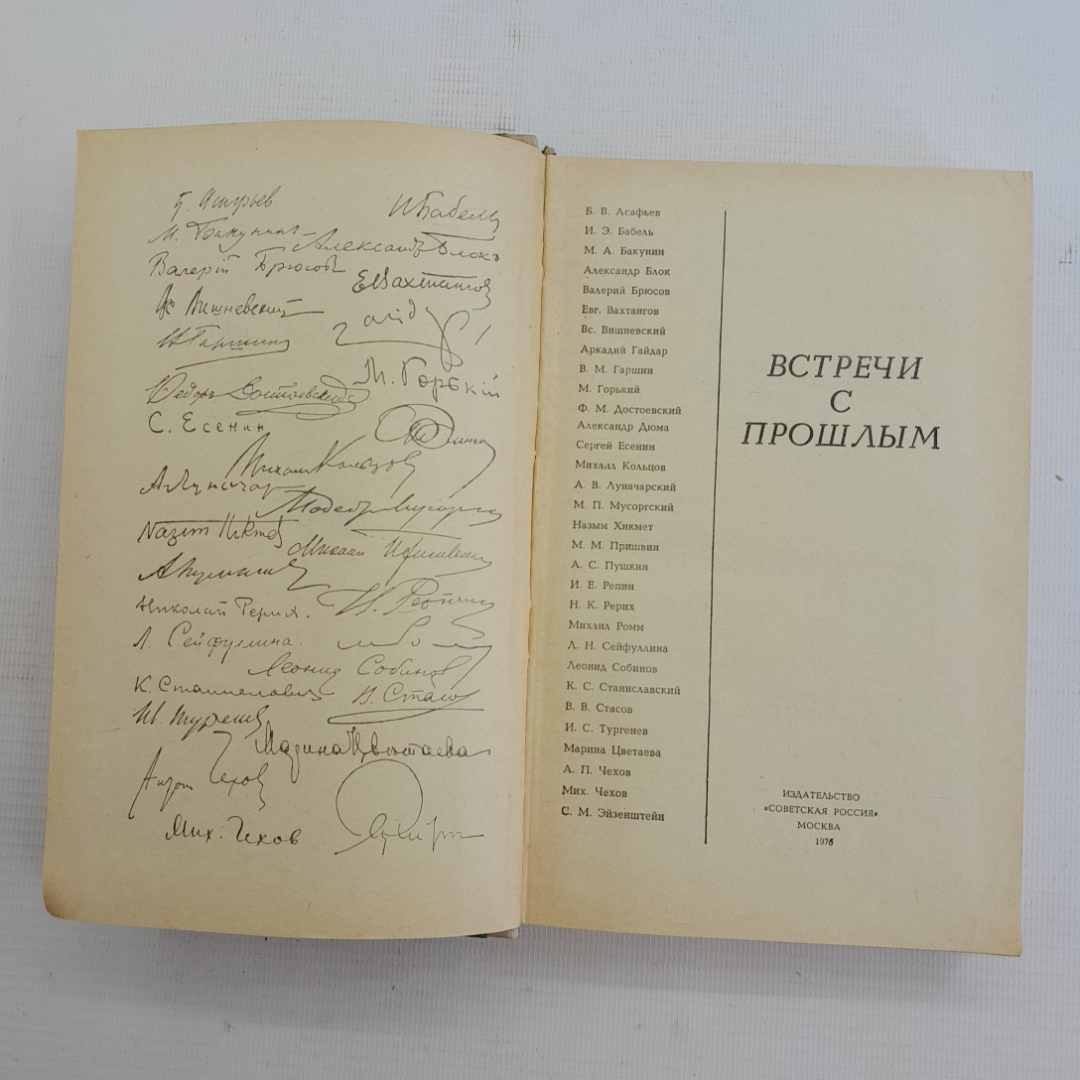 Б. Асафьев
И Бабель
М. Бакунин
Александр Блокъ
Валерій Брюсовъ
Е Вахтангов
Вс Вишневский
Гайдар
В Гаршин
М. Горькій
Федоръ Достоевскій
С. Есенин
Михаил Кольцов
А Луначар
Модестъ Мусорг
Nazım Hikmet
Михаил Пришвин
АПушкинъ
И. Репин
Николай Рерих.
Л. Сейфуллина.
Леонид Собинов
К. Станиславский
В. Стасов
Ив. Тургенев
Марина Цвѣтаева
Антон Чехов
Мих. Чехов
Б. В. Асафьев
И. Э. Бабель
М. А. Бакунин
Александр Блок
Валерий Брюсов
Евг. Вахтангов
Вс. Вишневский
Аркадий Гайдар
В. М. Гаршин
М. Горький
Ф. М. Достоевский
Александр Дюма
Сергей Есенин
Михаил Кольцов
А. В. Луначарский
М. П. Мусоргский
Назым Хикмет
М. М. Пришвин
А. С. Пушкин
И. Е. Репин
Н. К. Рерих
Михаил Ромм
Л. Н. Сейфуллина
Леонид Собинов
К. С. Станиславский
В. В. Стасов
И. С. Тургенев
Марина Цветаева
А. П. Чехов
Мих. Чехов
С. М. Эйзенштейн
ВСТРЕЧИ
С
ПРОШЛЫМ
ИЗДАТЕЛЬСТВО
«СОВЕТСКАЯ РОССИЯ»
МОСКВА
1976